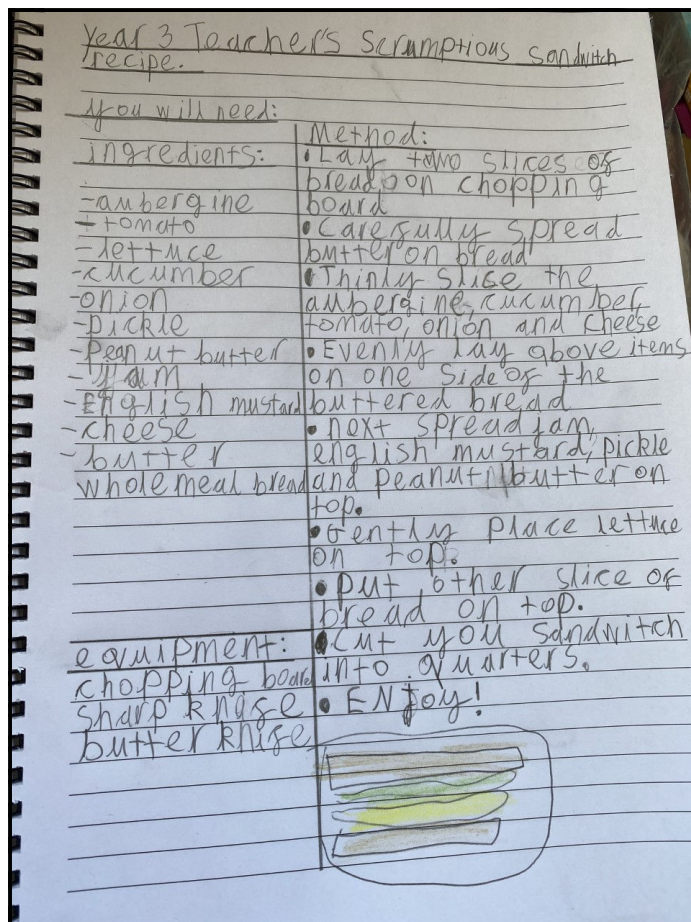 Year 3 Teacher's Scrumptious Sandwitch
recipe.
you will need:
ingredients:
-aubergine
-tomato
-lettuce
-cucumber
-onion
-pickle
-Peanut butter
-jam
-English mustard
-cheese
-butter
wholemeal bread
equipment:
chopping board
sharp knife
butter knife
Method:
• Lay two slices of
bread on chopping
board
• Carefully spread
butter on bread
• Thinly slise the
aubergine, cucumber,
tomato, onion and cheese
• Evenly lay above items
on one side of the
buttered bread
• next spread jam,
english mustard, pickle
and peanut butter on
top.
• Gently place lettuce
on top.
• put other slice of
bread on top.
• Cut you sandwitch
into quarters.
• ENjoy!